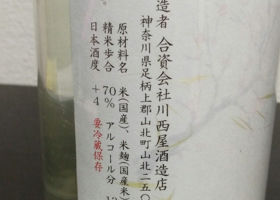 造者 合資会社川西屋酒造店
神奈川県足柄上郡山北町山北二五〇
原材料名 米(国産)、米麹(国産米)
精米歩合 70% アルコール分
日本酒度 +4 要冷蔵保存